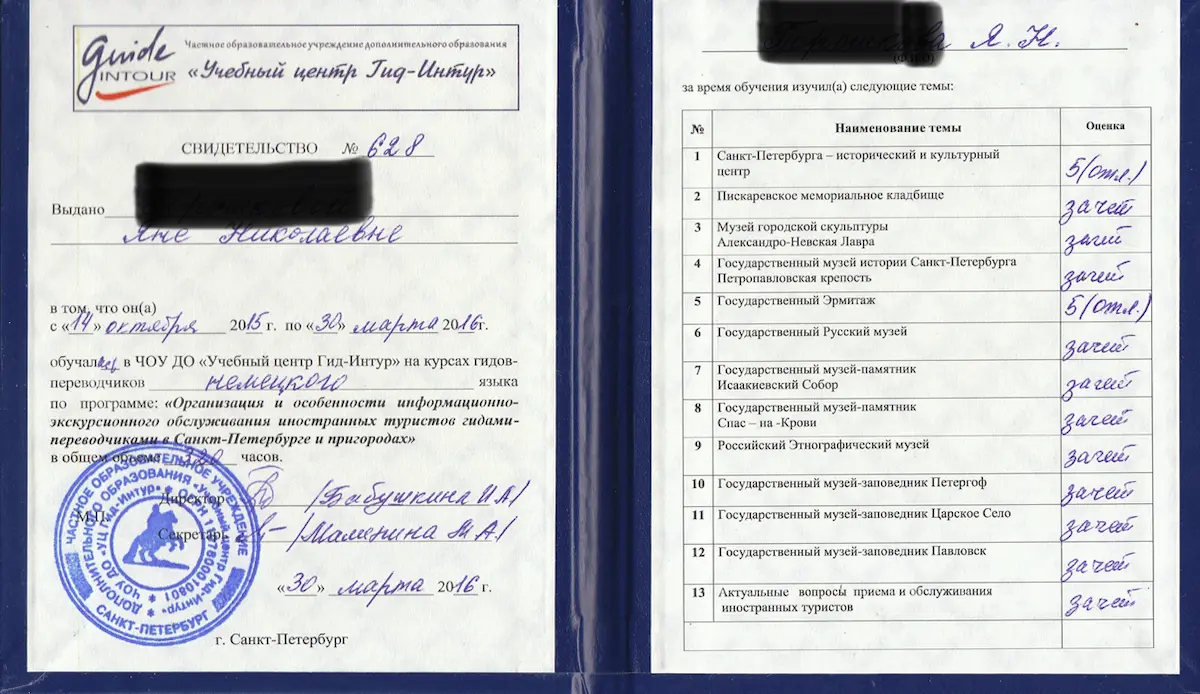 guide
INTOUR
Частное образовательное учреждение дополнительного образования
«Учебный центр Гид-Интур»
СВИДЕТЕЛЬСТВО № 628
Выдано
Яне Николаевне
в том, что он(а)
с «14» октября 2015 г. по «30» марта 2016г.
обучалась в ЧОУ ДО «Учебный центр Гид-Интур» на курсах гидов-
переводчиков немецкого языка
по программе: «Организация и особенности информационно-
экскурсионного обслуживания иностранных туристов гидами-
переводчиками в Санкт-Петербурге и пригородах»
в общем объеме 320 часов.
Директор /Бабушкина И А/
М.П.
Секретарь /Маменина М А/
«30» марта 2016 г.
г. Санкт-Петербург
ЧАСТНОЕ ОБРАЗОВАТЕЛЬНОЕ УЧРЕЖДЕНИЕ
ДОПОЛНИТЕЛЬНОГО ОБРАЗОВАНИЯ «Учебный центр Гид-Интур»
ЧОУ ДО «УЦ Гид-Интур»
САНКТ-ПЕТЕРБУРГ
Я. Н.
за время обучения изучил(а) следующие темы:
№ Наименование темы Оценка
1 Санкт-Петербурга – исторический и культурный
центр 5(отл.)
2 Пискаревское мемориальное кладбище зачет
3 Музей городской скульптуры
Александро-Невская Лавра зачет
4 Государственный музей истории Санкт-Петербурга
Петропавловская крепость зачет
5 Государственный Эрмитаж 5(отл.)
6 Государственный Русский музей зачет
7 Государственный музей-памятник
Исаакиевский Собор зачет
8 Государственный музей-памятник
Спас – на -Крови зачет
9 Российский Этнографический музей зачет
10 Государственный музей-заповедник Петергоф зачет
11 Государственный музей-заповедник Царское Село зачет
12 Государственный музей-заповедник Павловск зачет
13 Актуальные вопросы приема и обслуживания
иностранных туристов зачет